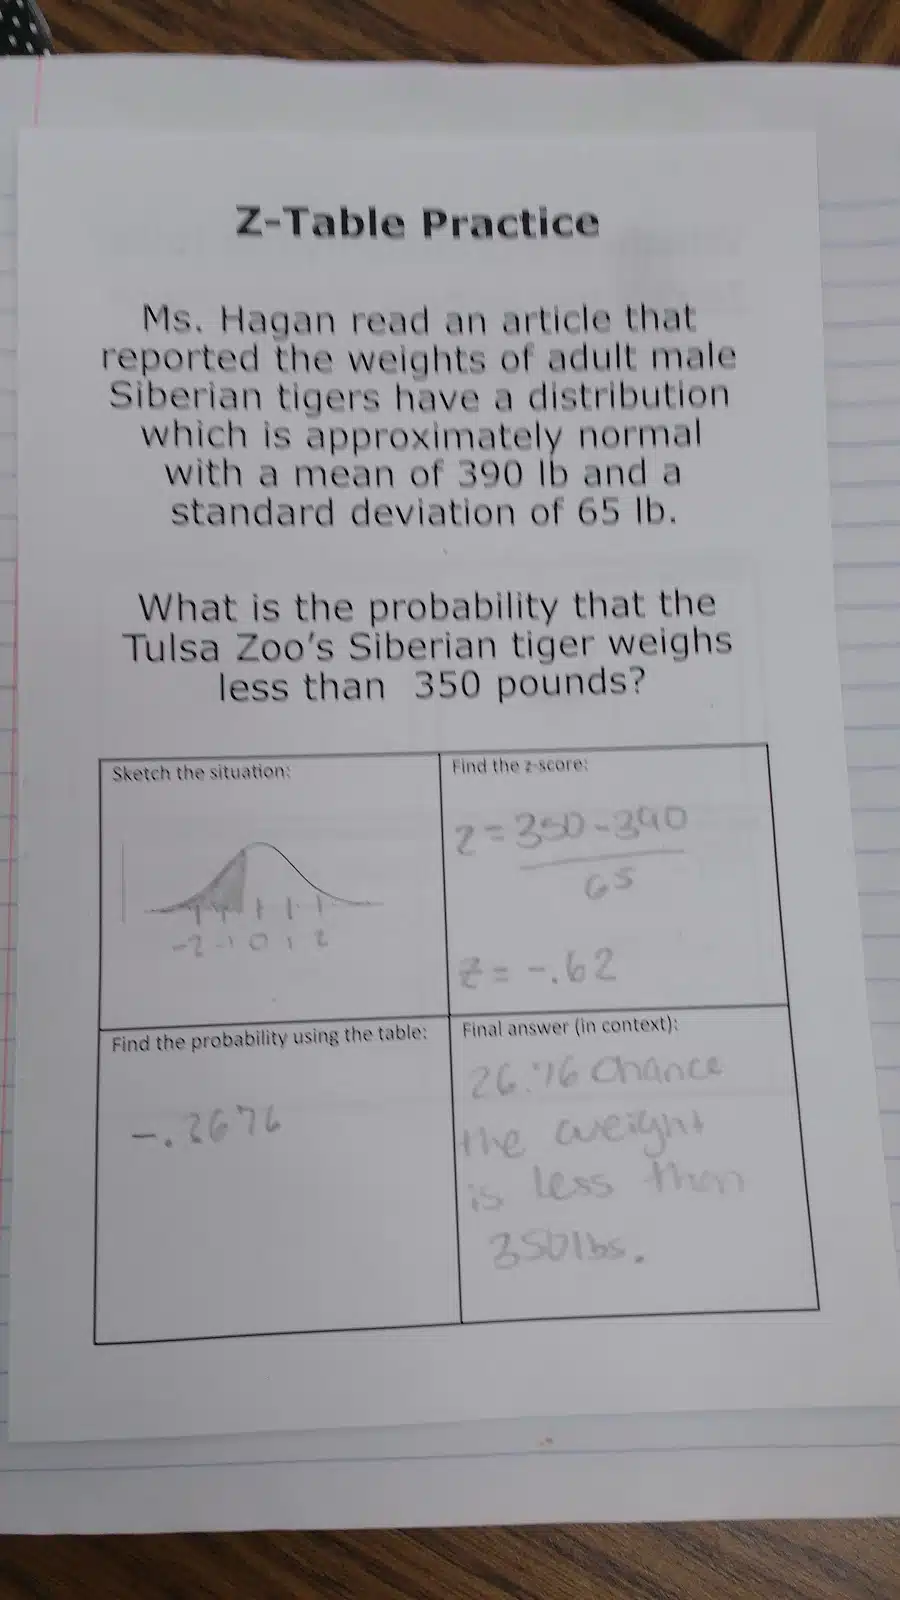 Z-Table Practice
Ms. Hagan read an article that
reported the weights of adult male
Siberian tigers have a distribution
which is approximately normal
with a mean of 390 lb and a
standard deviation of 65 lb.
What is the probability that the
Tulsa Zoo's Siberian tiger weighs
less than 350 pounds?
Sketch the situation:
-2 -1 0 1 2
Find the z-score:
z = 350-390
65
z = -.62
Find the probability using the table:
-.2676
Final answer (in context):
26.76 chance
the weight
is less then
350lbs.